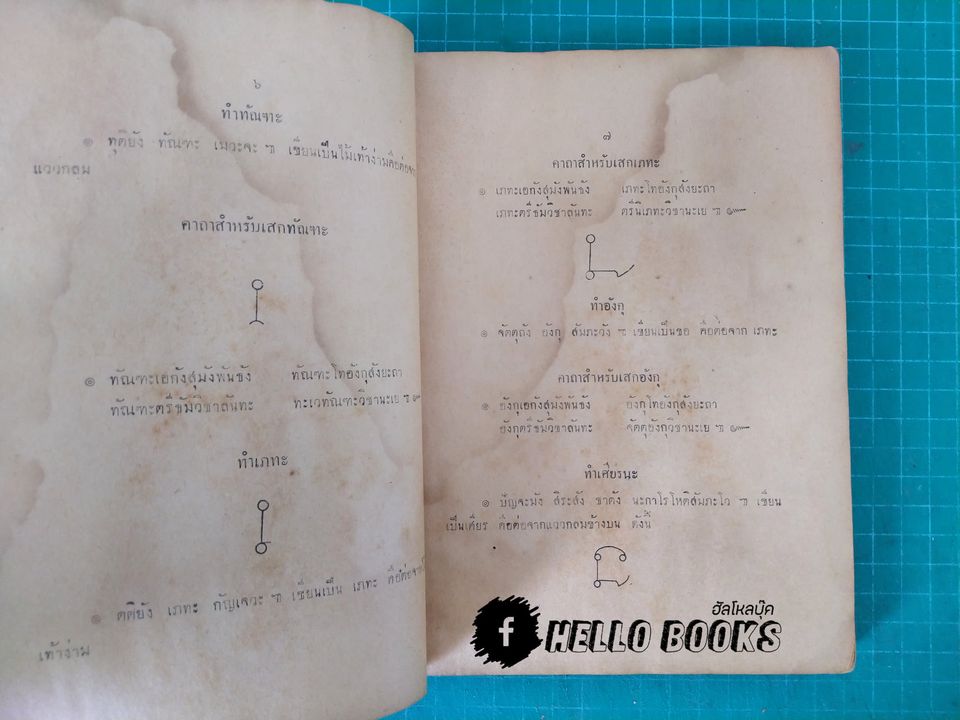 ๖
ทำทัณฑะ
๏ ทุติยัง ทัณฑะ เมวะจะ ฯ เขียนเป็นไม้เท้าง่ามคือต่อจาก
แววกลม
คาถาสำหรับเสกทัณฑะ
๏ ทัณฑะเอกังสุมังพันธัง ทัณฑะโทอังกุสังยะถา
ทัณฑะตรีขัมวิชาลันทะ ทะเวทัณฑะวิชานะเย ฯ ๛
ทำเภทะ
๏ ตติยัง เภทะ กัญเจวะ ฯ เขียนเป็น เภทะ คือต่อจาก
เท้าง่าม
๗
คาถาสำหรับเสกเภทะ
๏ เภทะเอกังสุมังพันธัง เภทะโทอังกุสังยะถา
เภทะตรีขัมวิชาลันทะ ตรีนิเภทะวิชานะเย ฯ ๛
ทำอังกุ
๏ จัตตุถัง อังกุ สัมภะวัง ฯ เขียนเป็นขอ คือต่อจาก เภทะ
คาถาสำหรับเสกอังกุ
๏ อังกุเอกังสุมังพันธัง อังกุโทอังกุสังยะถา
อังกุตรีขัมวิชาลันทะ จัตตุอังกุวิชานะเย ฯ ๛
ทำเศียรนะ
๏ ปัญจะมัง สิระสัง ชาตัง นะกาโรโหติสัมภะโว ฯ เขียน
เป็นเศียร คือต่อจากแววกลมข้างบน ดังนี้
ฮัลโหลบุ๊ค
f HELLO BOOKS